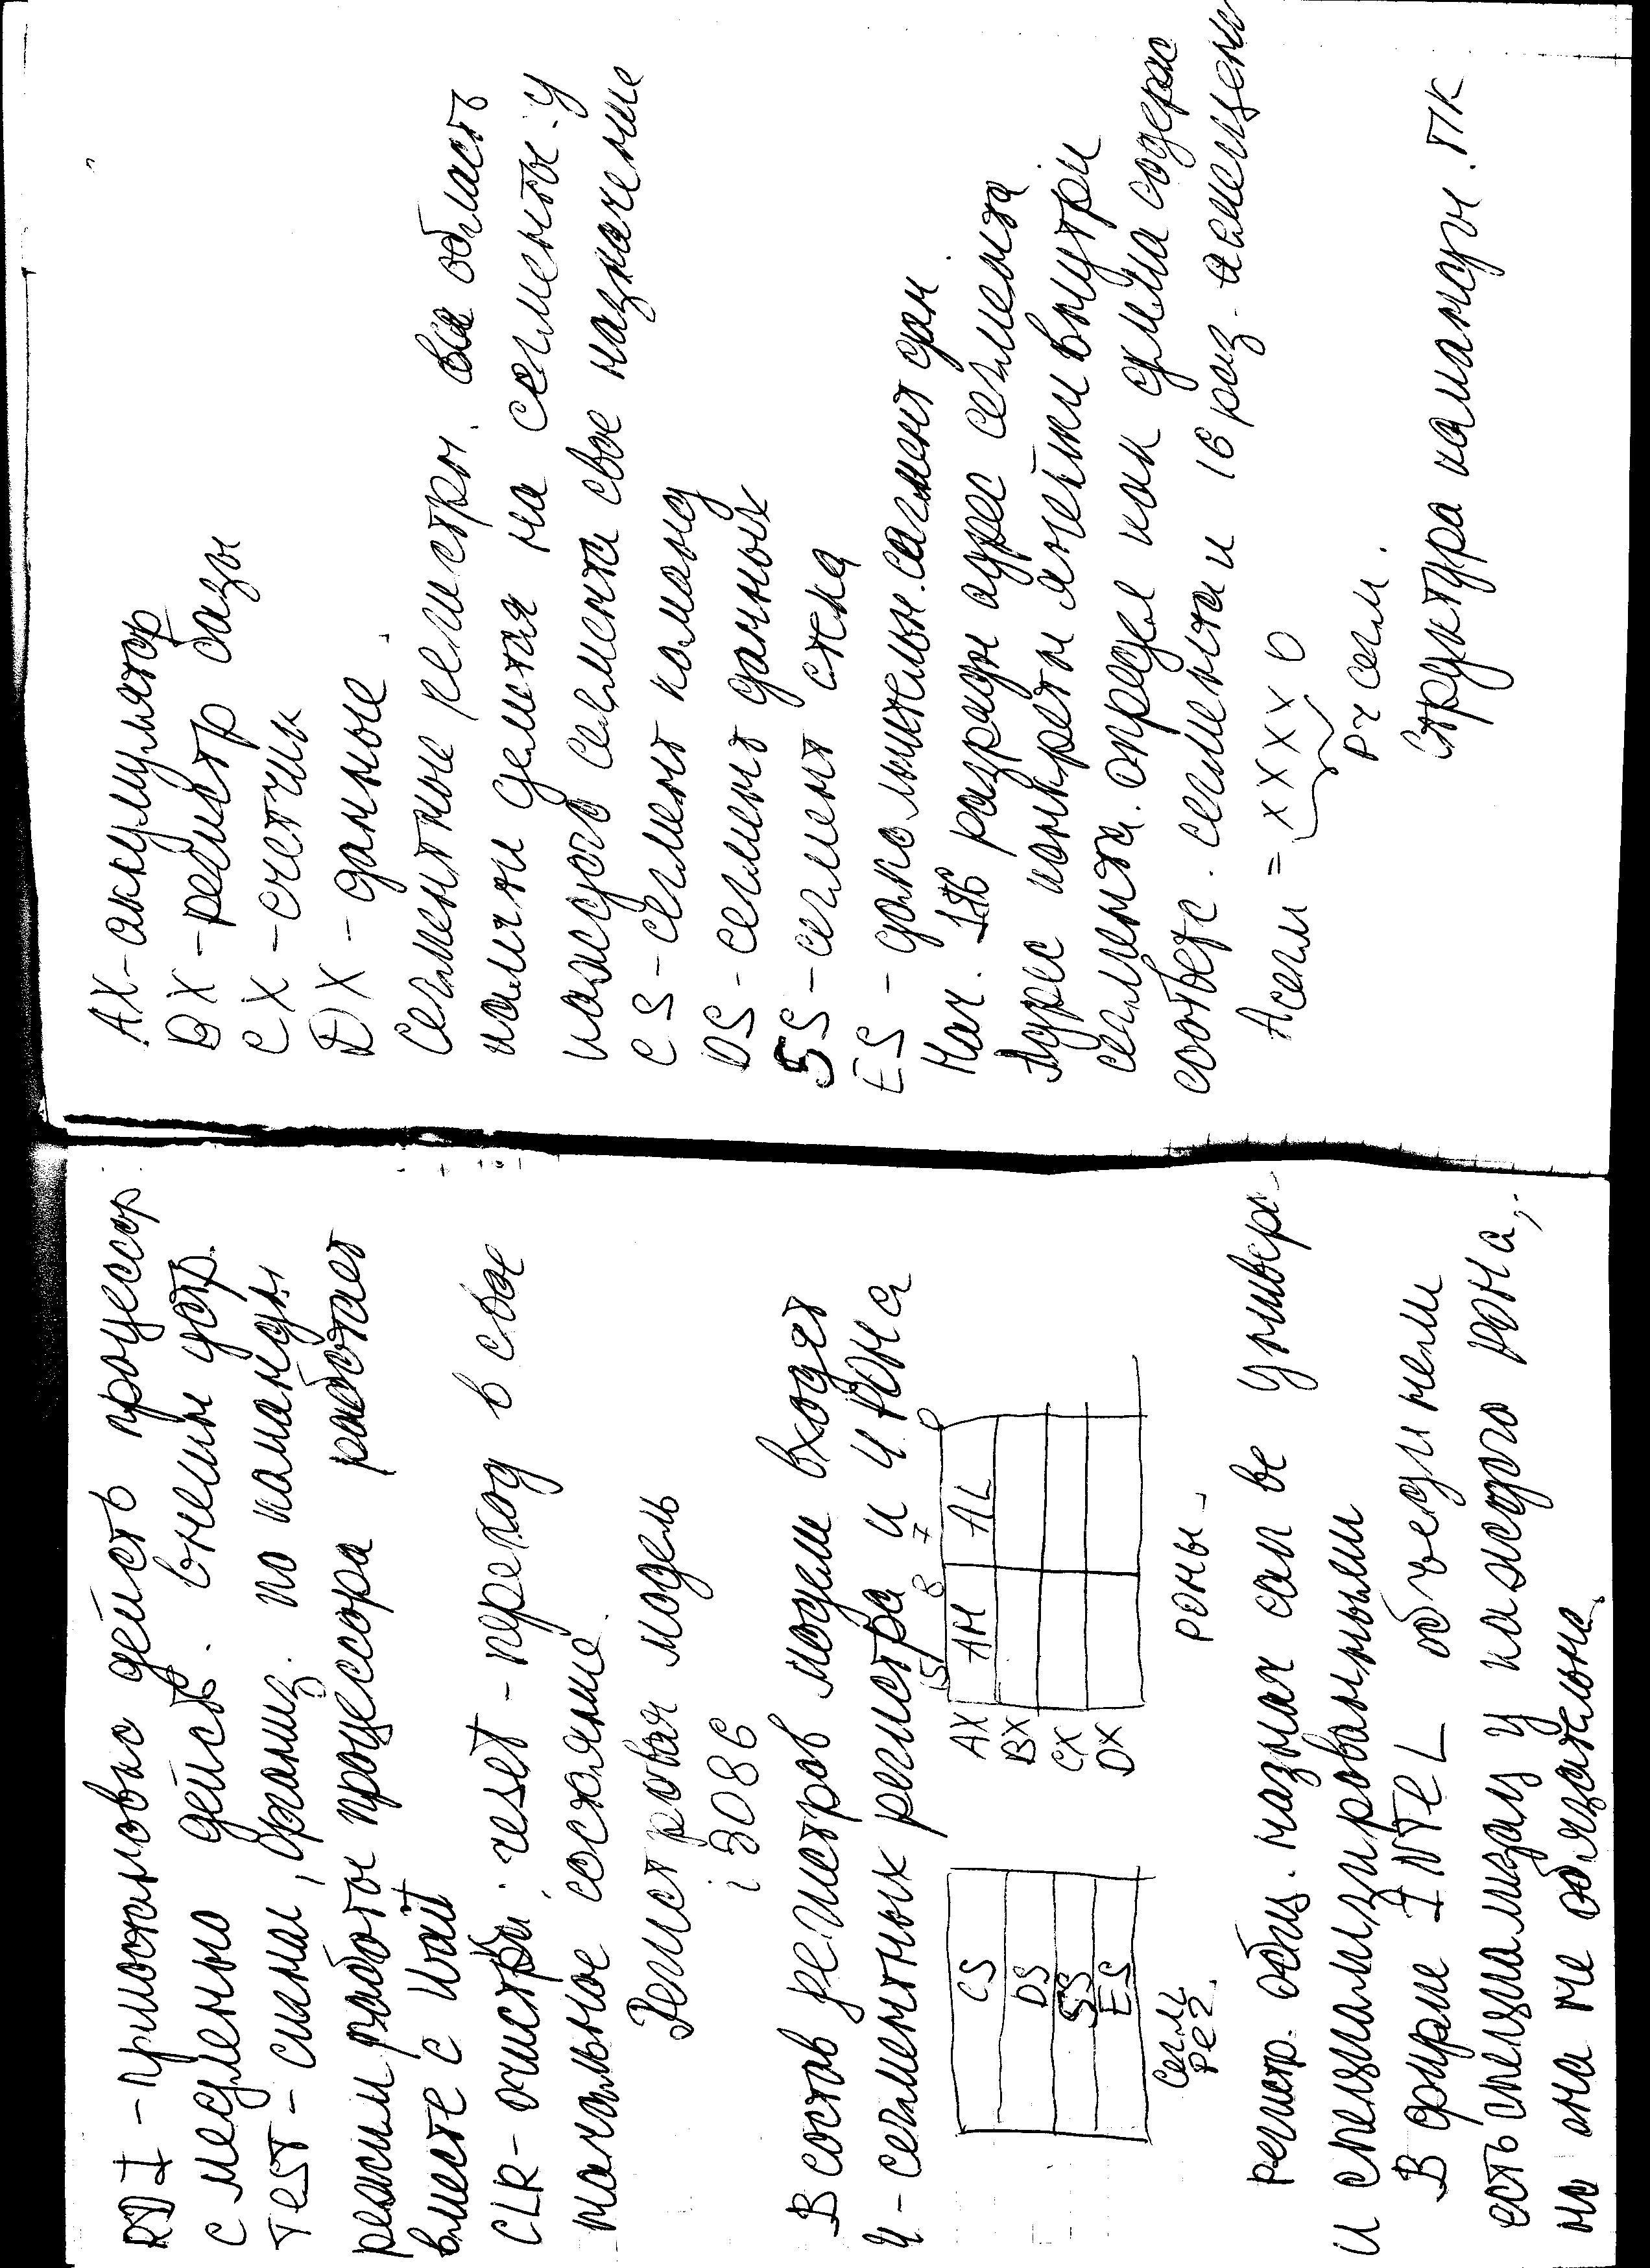 RDI - приостановыс дейст процессор
с медленно дейст. внешн устр.
TEST - сигнал, организ. по команды
режим работы процессора работает
вместе с Wait
CLR - очистки; reset - переход в свое
начальное состояние.
Регистровая модель
i 8086
В состав регистров модели входят
4 - сегментных регистра и 4 РОНа
CS
DS
SS
ES
Сегм
рег.
15 8 7 0
AX AH AL
BX
CX
DX
РОНы -
регистр. общ. назнач сап ве универ
и специализированными
В фирме INTEL объединели
есть специализац у каждого РОНа,
но она не обязательна
AX - аккумулятор
BX - регистр базы
CX - счетчик
DX - данные
Сегментные регистры. вся область
памяти делится на сегменты. У
каждого сегмента свое назначение
CS - сегмент команд
DS - сегмент данных
SS - сегмент стека
ES - дополнительн. сегмент дан.
Нач. 16 разряды адрес сегмента
Адрес конкретн ячейки внутри
сегмента. определ как сумма содерж
соответс. сегмента и 16 раз. смещени
Асегм = XXXX0
Рг сегм.
Структура команды. ПК